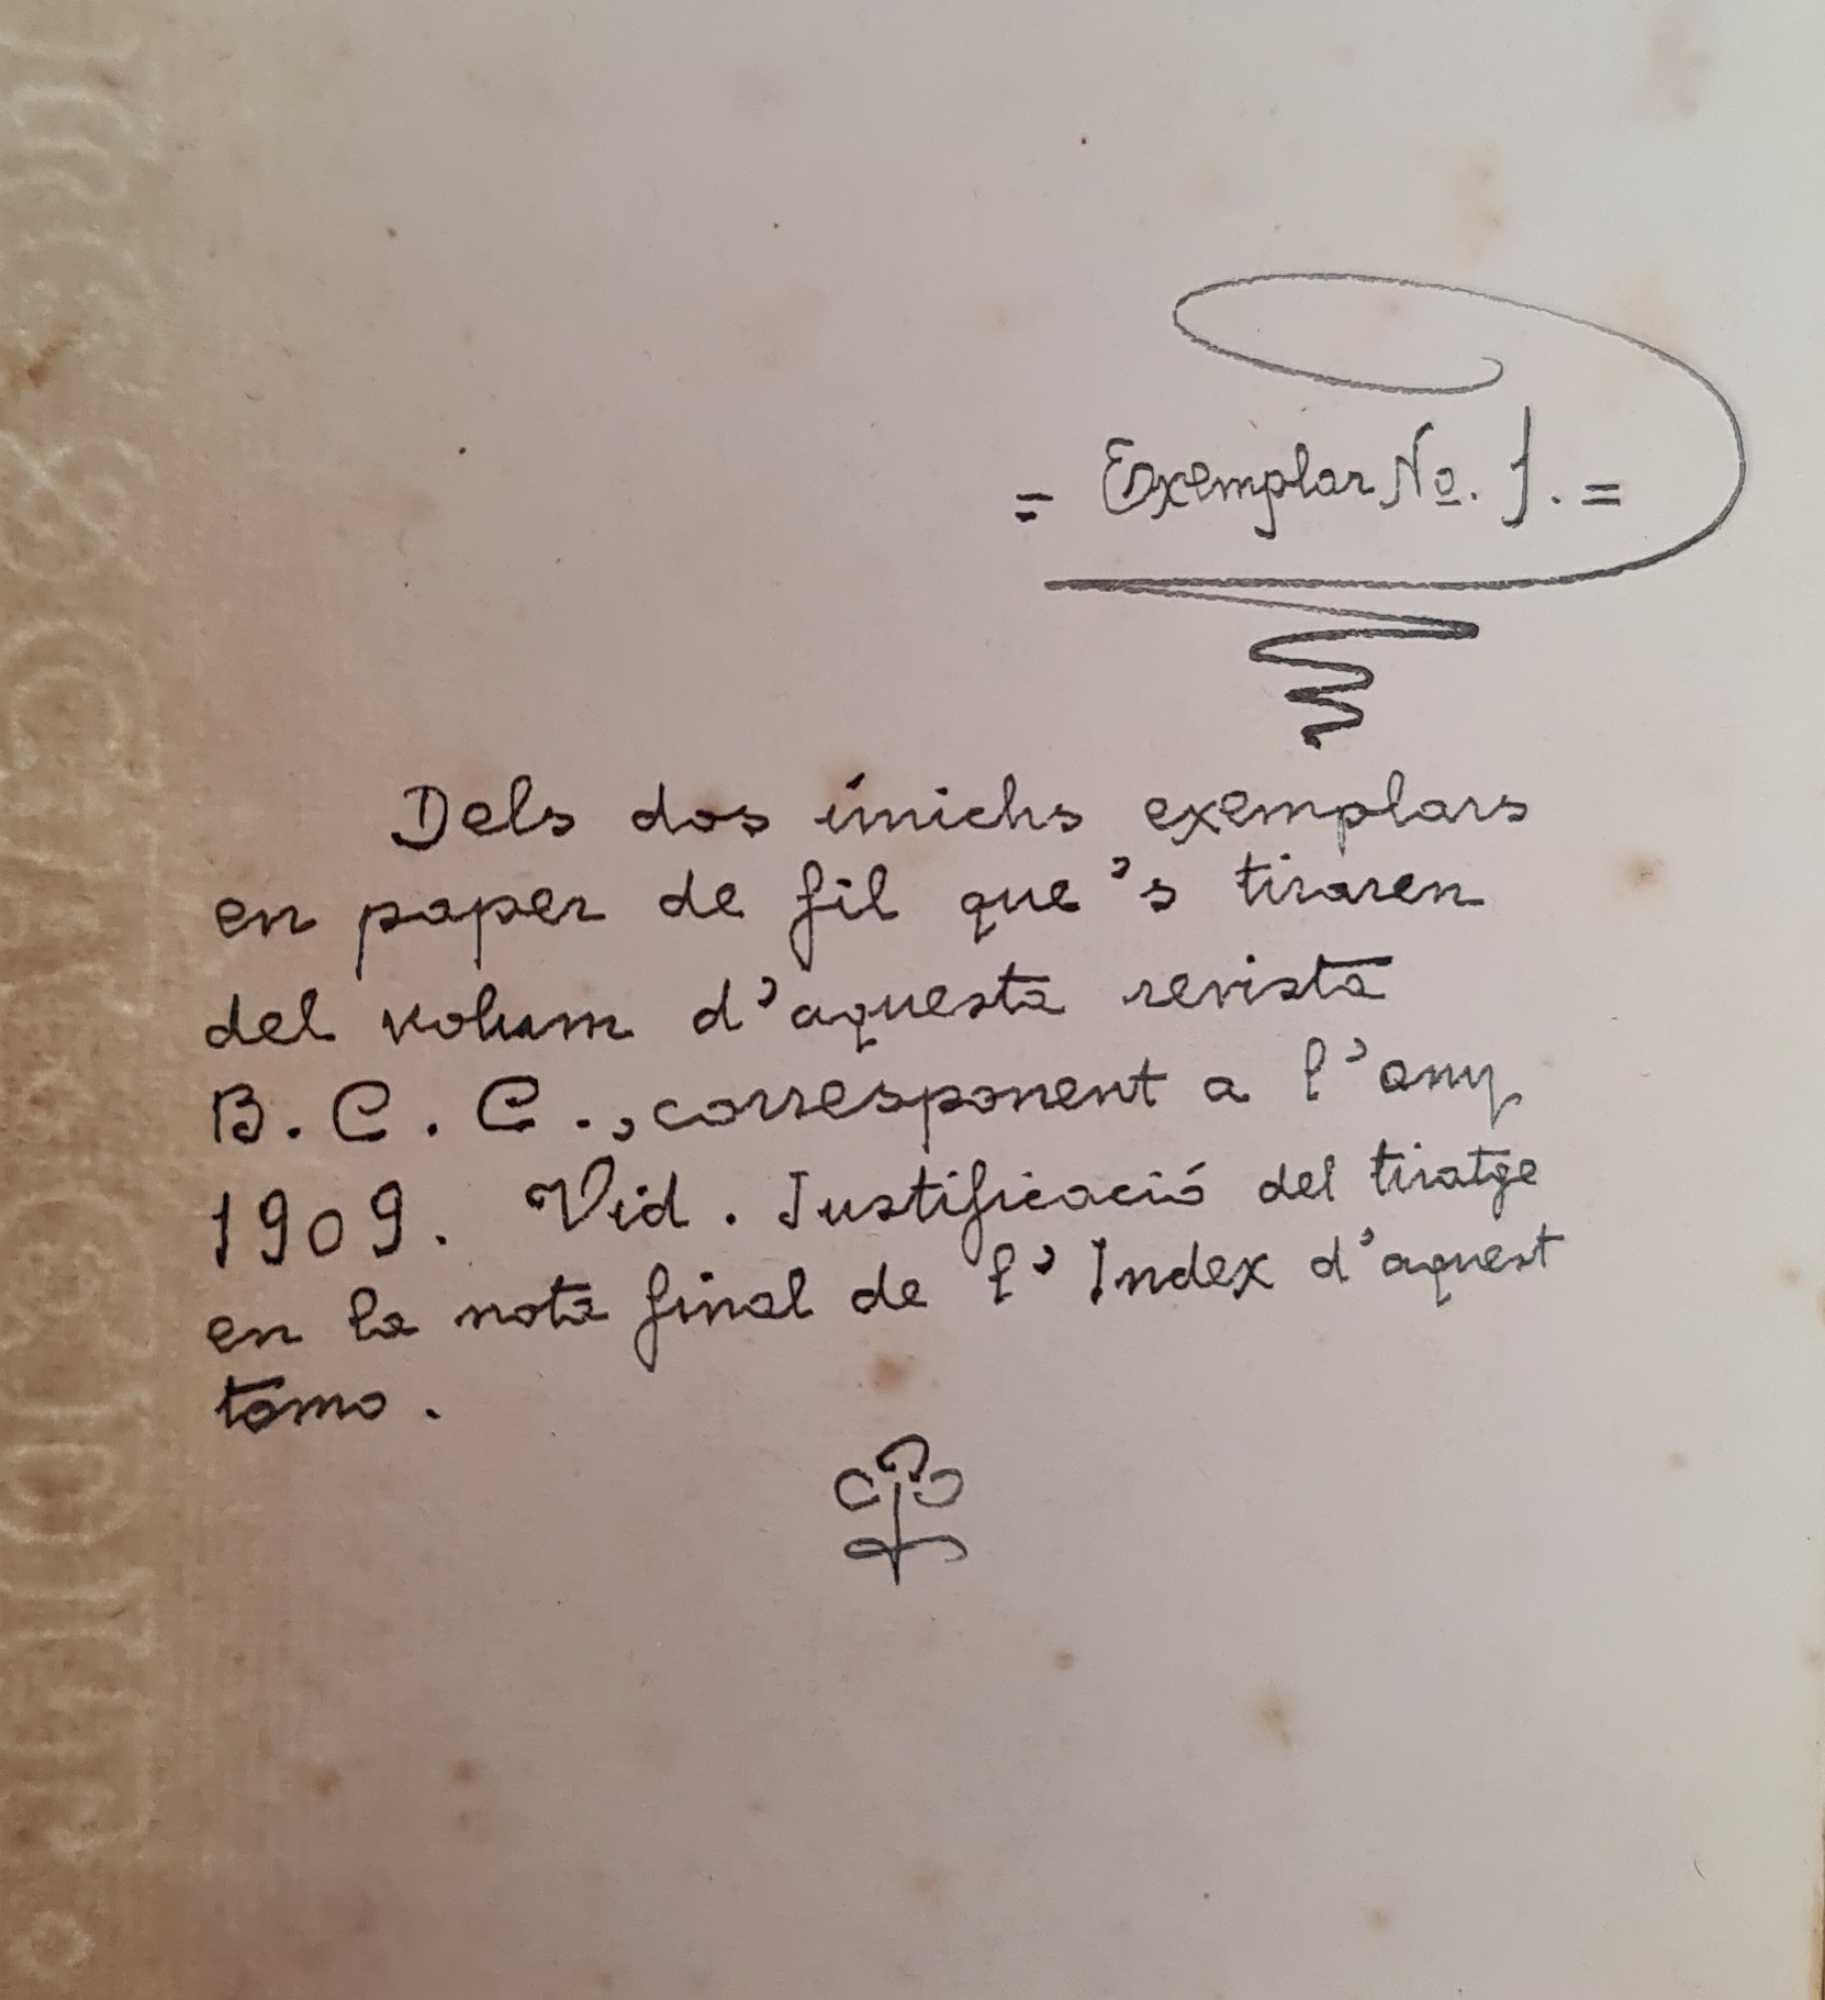 = Exemplar No. 1. =
Dels dos únichs exemplars
en paper de fil que's tiraren
del volum d'aquesta revista
B. C. C., corresponent a l'any
1909. Vid. Justificació del tiratge
en la nota final de l'Index d'aquest
tomo.